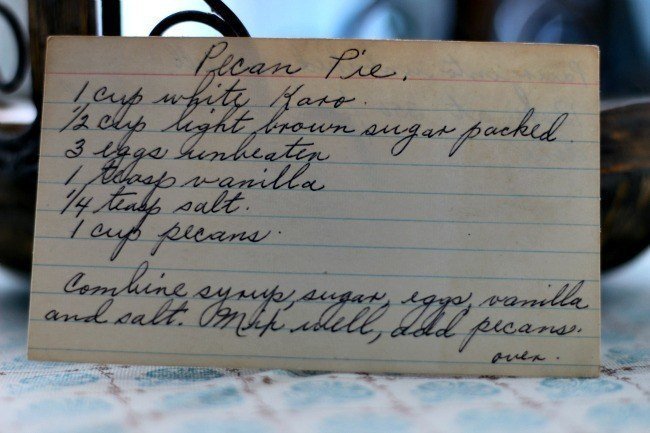 Pecan Pie.
1 cup white Karo.
1/2 cup light brown sugar packed
3 eggs unbeaten
1 teasp vanilla
1/4 teasp salt.
1 cup pecans.
Combine syrup, sugar, eggs, vanilla
and salt. Mix well, add pecans.
over.